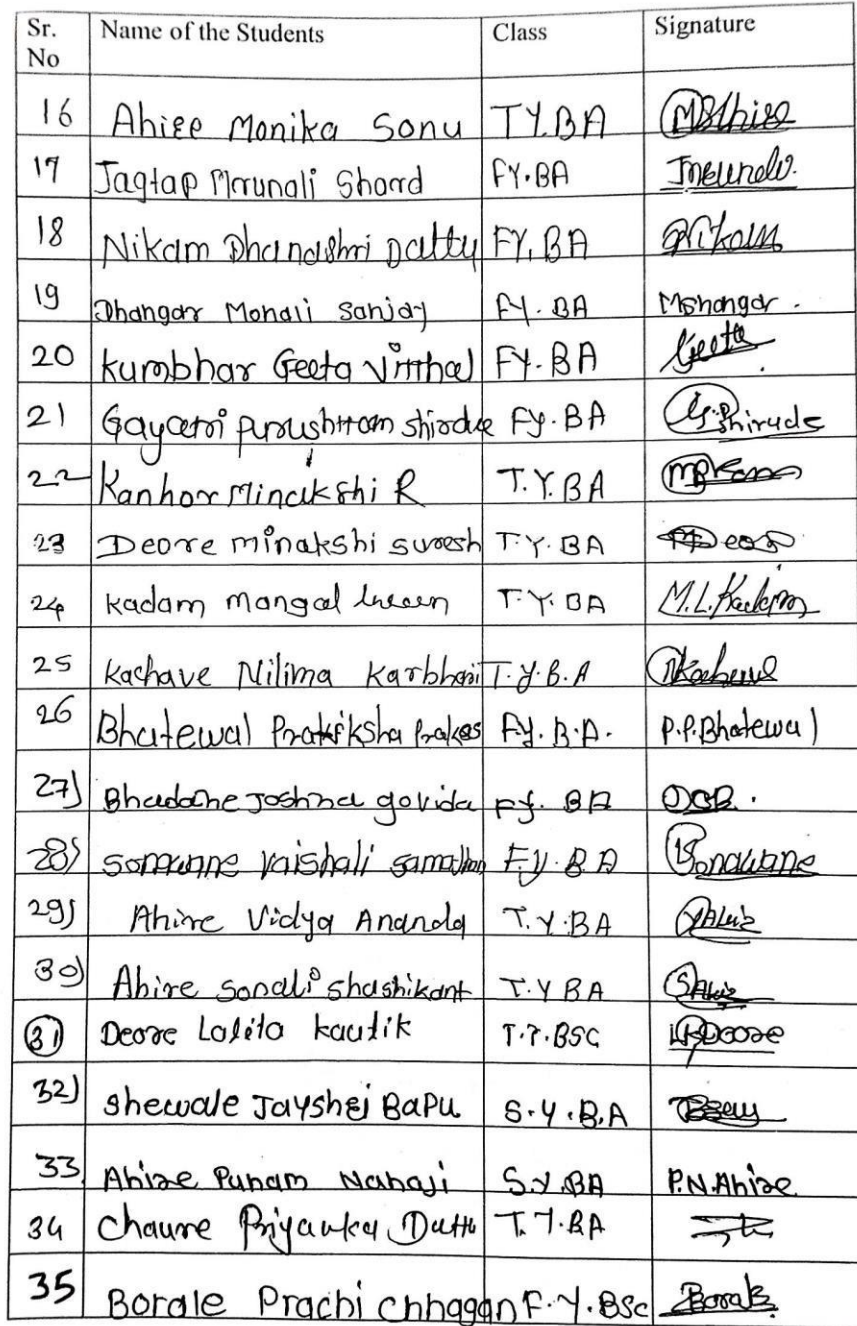 Sr. No Name of the Students Class Signature
16 Ahire Monika Sonu T.Y.BA
17 Jagtap Mrunali Sharad FY.BA
18 Nikam Dhanashri Dattu FY.BA Nikam
19 Dhangar Monali Sanjay FY.BA
20 Kumbhar Geeta Vitthal FY.BA Geeta
21 Gayatri Purushttam Shirude FY.BA Shirude
22 Kanhor Minakshi R T.Y.BA
23 Deore minakshi suresh T.Y.BA
24 Kadam mangal T.Y.BA M.L.Kadam
25 Kachave Nilima Karbhari T.Y.B.A
26 Bhatewal Pratiksha Prakas F.Y.B.A. P.P.Bhatewal
27) Bhadane Joshna govida F.Y.BA
28) sonawane Vaishali samadhan F.Y.B.A Sonawane
29) Ahire Vidya Ananda T.Y.BA
30) Ahire sonali shashikant T.Y BA
31 Deore Lalita kautik T.Y.BSC Deore
32) Shewale Jayshri BaPu S.Y.B.A
33 Ahire Punam Nanaji S.Y.BA P.N.Ahire
34 Chaure Priyanka Dattu T.Y.BA
35 Borale Prachi Chhagan F.Y.BSc Borale